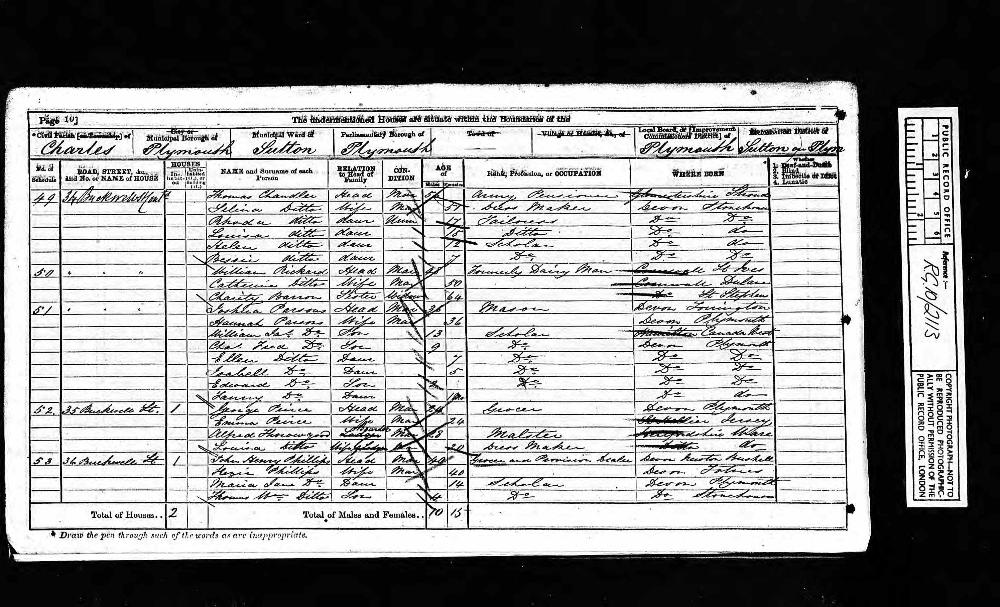 Page 10]
The undermentioned Houses are situate within the Boundaries of the
Civil Parish [or Township] of
City or Municipal Borough of
Municipal Ward of
Parliamentary Borough of
Town of
Village or Hamlet, &c., of
Local Board, or [Improvement Commissioners District] of
Ecclesiastical District of
Charles Plymouth Sutton Plymouth Plymouth Sutton on Plym
No. of Schedule
ROAD, STREET, &c., and No. or NAME of HOUSE
HOUSES
NAME and Surname of each Person
RELATION to Head of Family
CONDITION
AGE of
Males Females
Rank, Profession, or OCCUPATION
WHERE BORN
Whether
1. Deaf-and-Dumb
2. Blind
3. Imbecile or Idiot
4. Lunatic
49 34 Thomas Chandler Head Mar Army Pensioner
Selina Ditto Wife Mar Dress Maker Devon Stonehouse
Rhoda ditto daur Unm 17 Tailoress Do Do
Louisa ditto daur 15 Ditto Do do
Helen ditto daur 12 Scholar Do do
Bessie ditto daur 7 Do Do Do
50 " " " William Rickard Head Mar Formerly Dairy Man Cornwall St Ives
Catherine Ditto Wife Mar 50 Cornwall
Charity Barron Sister Widow 64 Do St Stephen
51 " " " Parsons Head Mar 36 Mason Devon Torrington
Hannah Parsons Wife Mar 36 Devon Plymouth
William Jas Do Son 13 Scholar Canada West
Chas Fred Do Son 9 Do Devon Plymouth
Ellen Ditto Daur 7 Do Do Do
Isabell Do Daur 5 Do Do Do
Edward Do Son Do Do Do
Fanny Do Daur Do do
52 35 Buckwell St. 1 George Peirce Head Mar 24 Grocer Devon Plymouth
Emma Peirce Wife Mar 24 Jersey
Alfred Lodger Mar 23 Malster Ware
Louisa Ditto Wife 20 Dress Maker do
53 36 Buckwell St 1 John Henry Phillips Head Mar 49 Grocer and Provision Dealer Devon
Phillips Wife Mar 40 Devon Totnes
Maria Jane Do Daur 14 Scholar Devon Plymouth
Thomas Wm Ditto Son 4 Do Do Stonehouse
Total of Houses.. 2 Total of Males and Females.. 10 15
* Draw the pen through such of the words as are inappropriate.
PUBLIC RECORD OFFICE
1 2 3 4 5 6
Reference :-
RG.10/2113
COPYRIGHT PHOTOGRAPH—NOT TO BE REPRODUCED PHOTOGRAPHICALLY WITHOUT PERMISSION OF THE PUBLIC RECORD OFFICE, LONDON